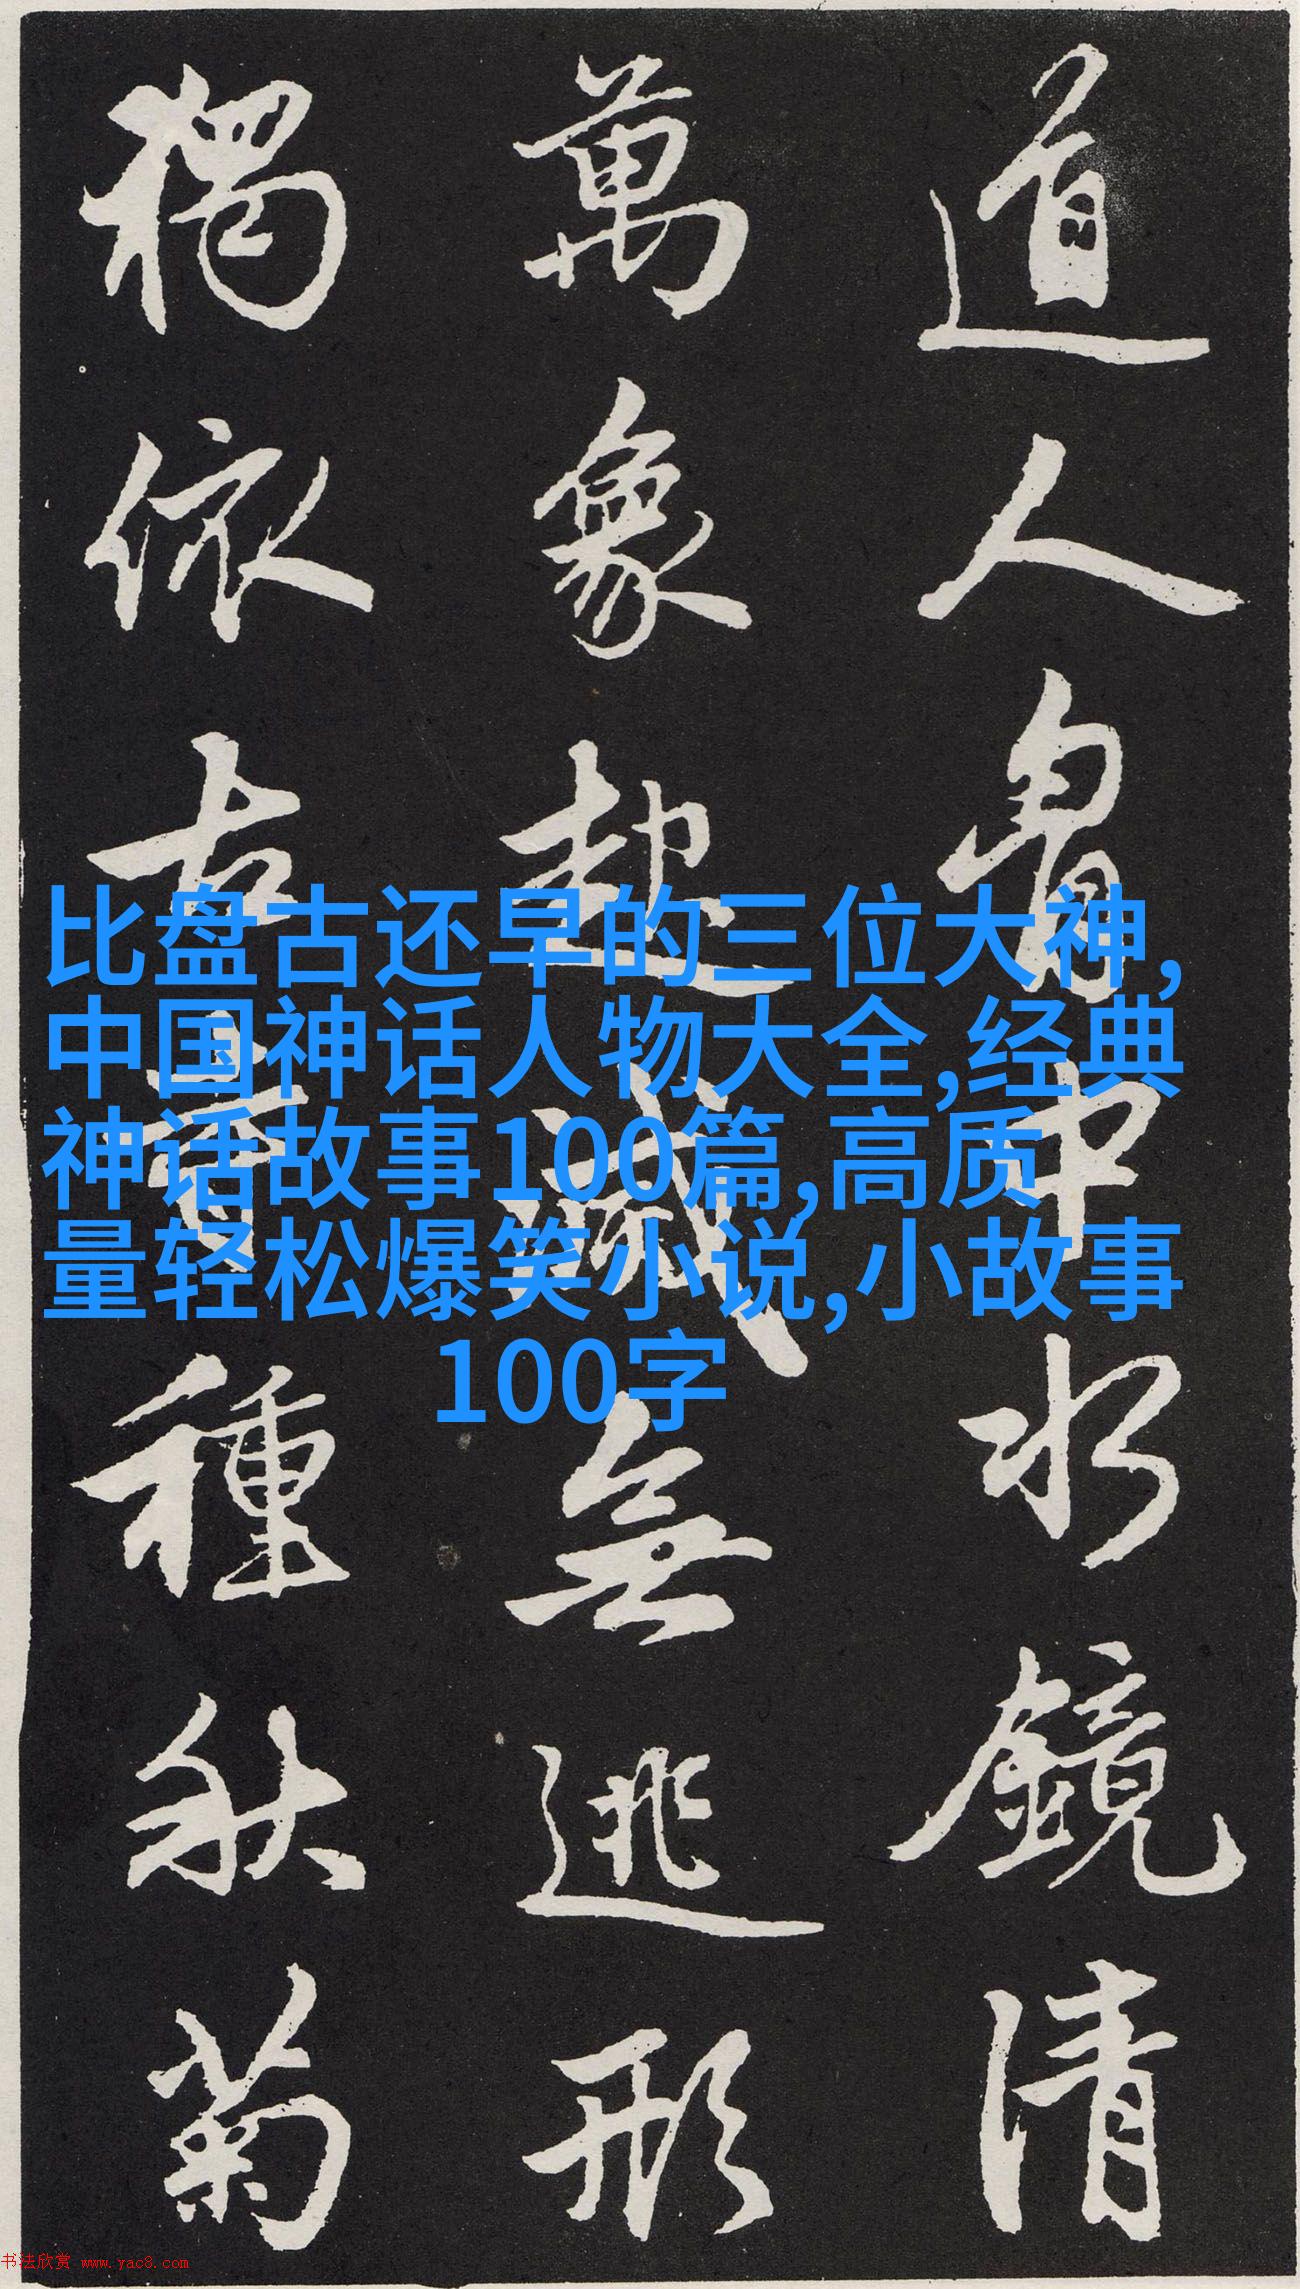 道人胷中水鏡清
萬象起滅無逃形
獨依古寺種秋菊
比盘古还早的三位大神,
中国神话人物大全,经典
神话故事100篇,高质
量轻松爆笑小说,小故事
100字
书法欣赏 www.yac8.com